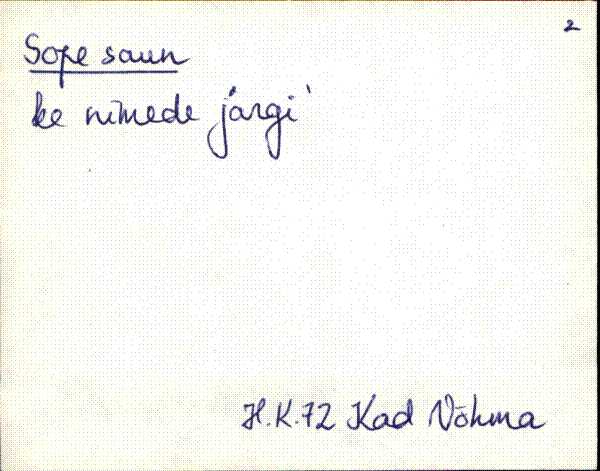 2
Sope saun
ke nimede järgi'
H.K.72 Kad Võhma